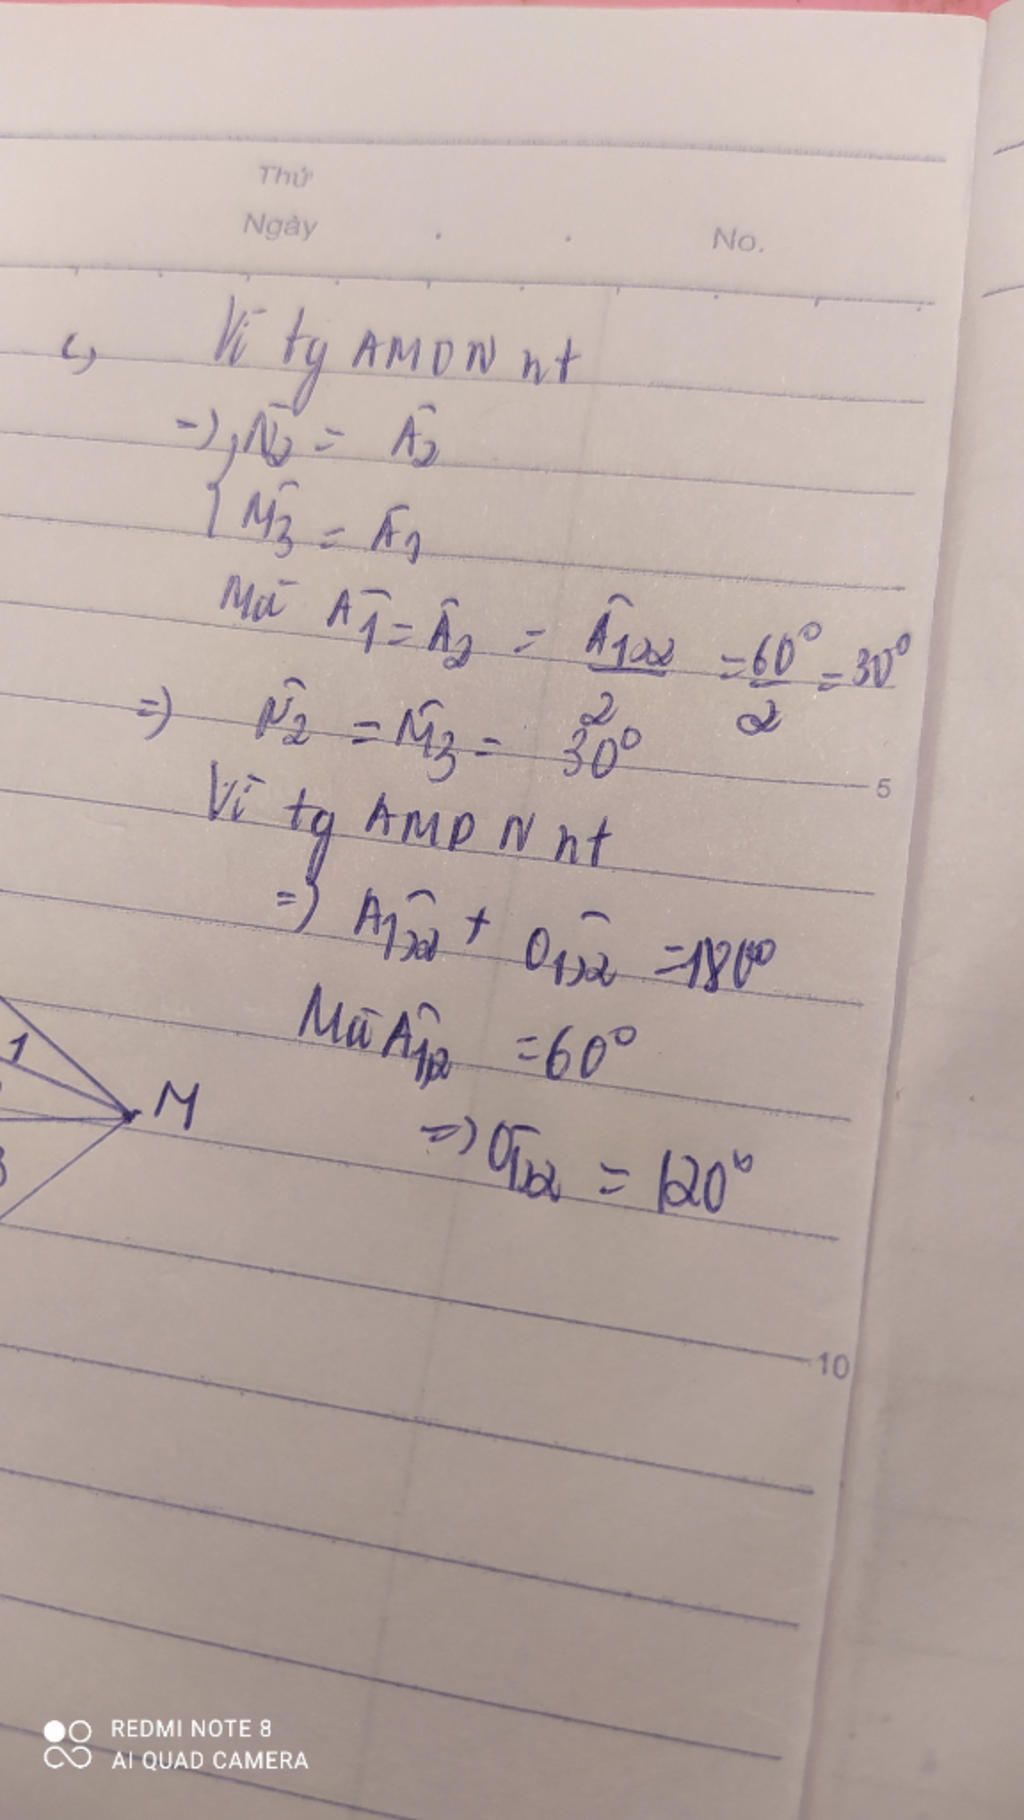 Thứ
Ngày
No.
c, Vì tg AMDN nt
=> N̂2 = Â2
{ M̂3 = Â1
Mà Â1 = Â2 = Â1,2 / 2 = 60° / 2 = 30°
=> N̂2 = M̂3 = 30°
5
Vì tg AMDN nt
=> Â1,2 + D̂1,2 = 180°
Mà Â1,2 = 60°
1
M
=> D̂1,2 = 120°
3
10
REDMI NOTE 8
AI QUAD CAMERA